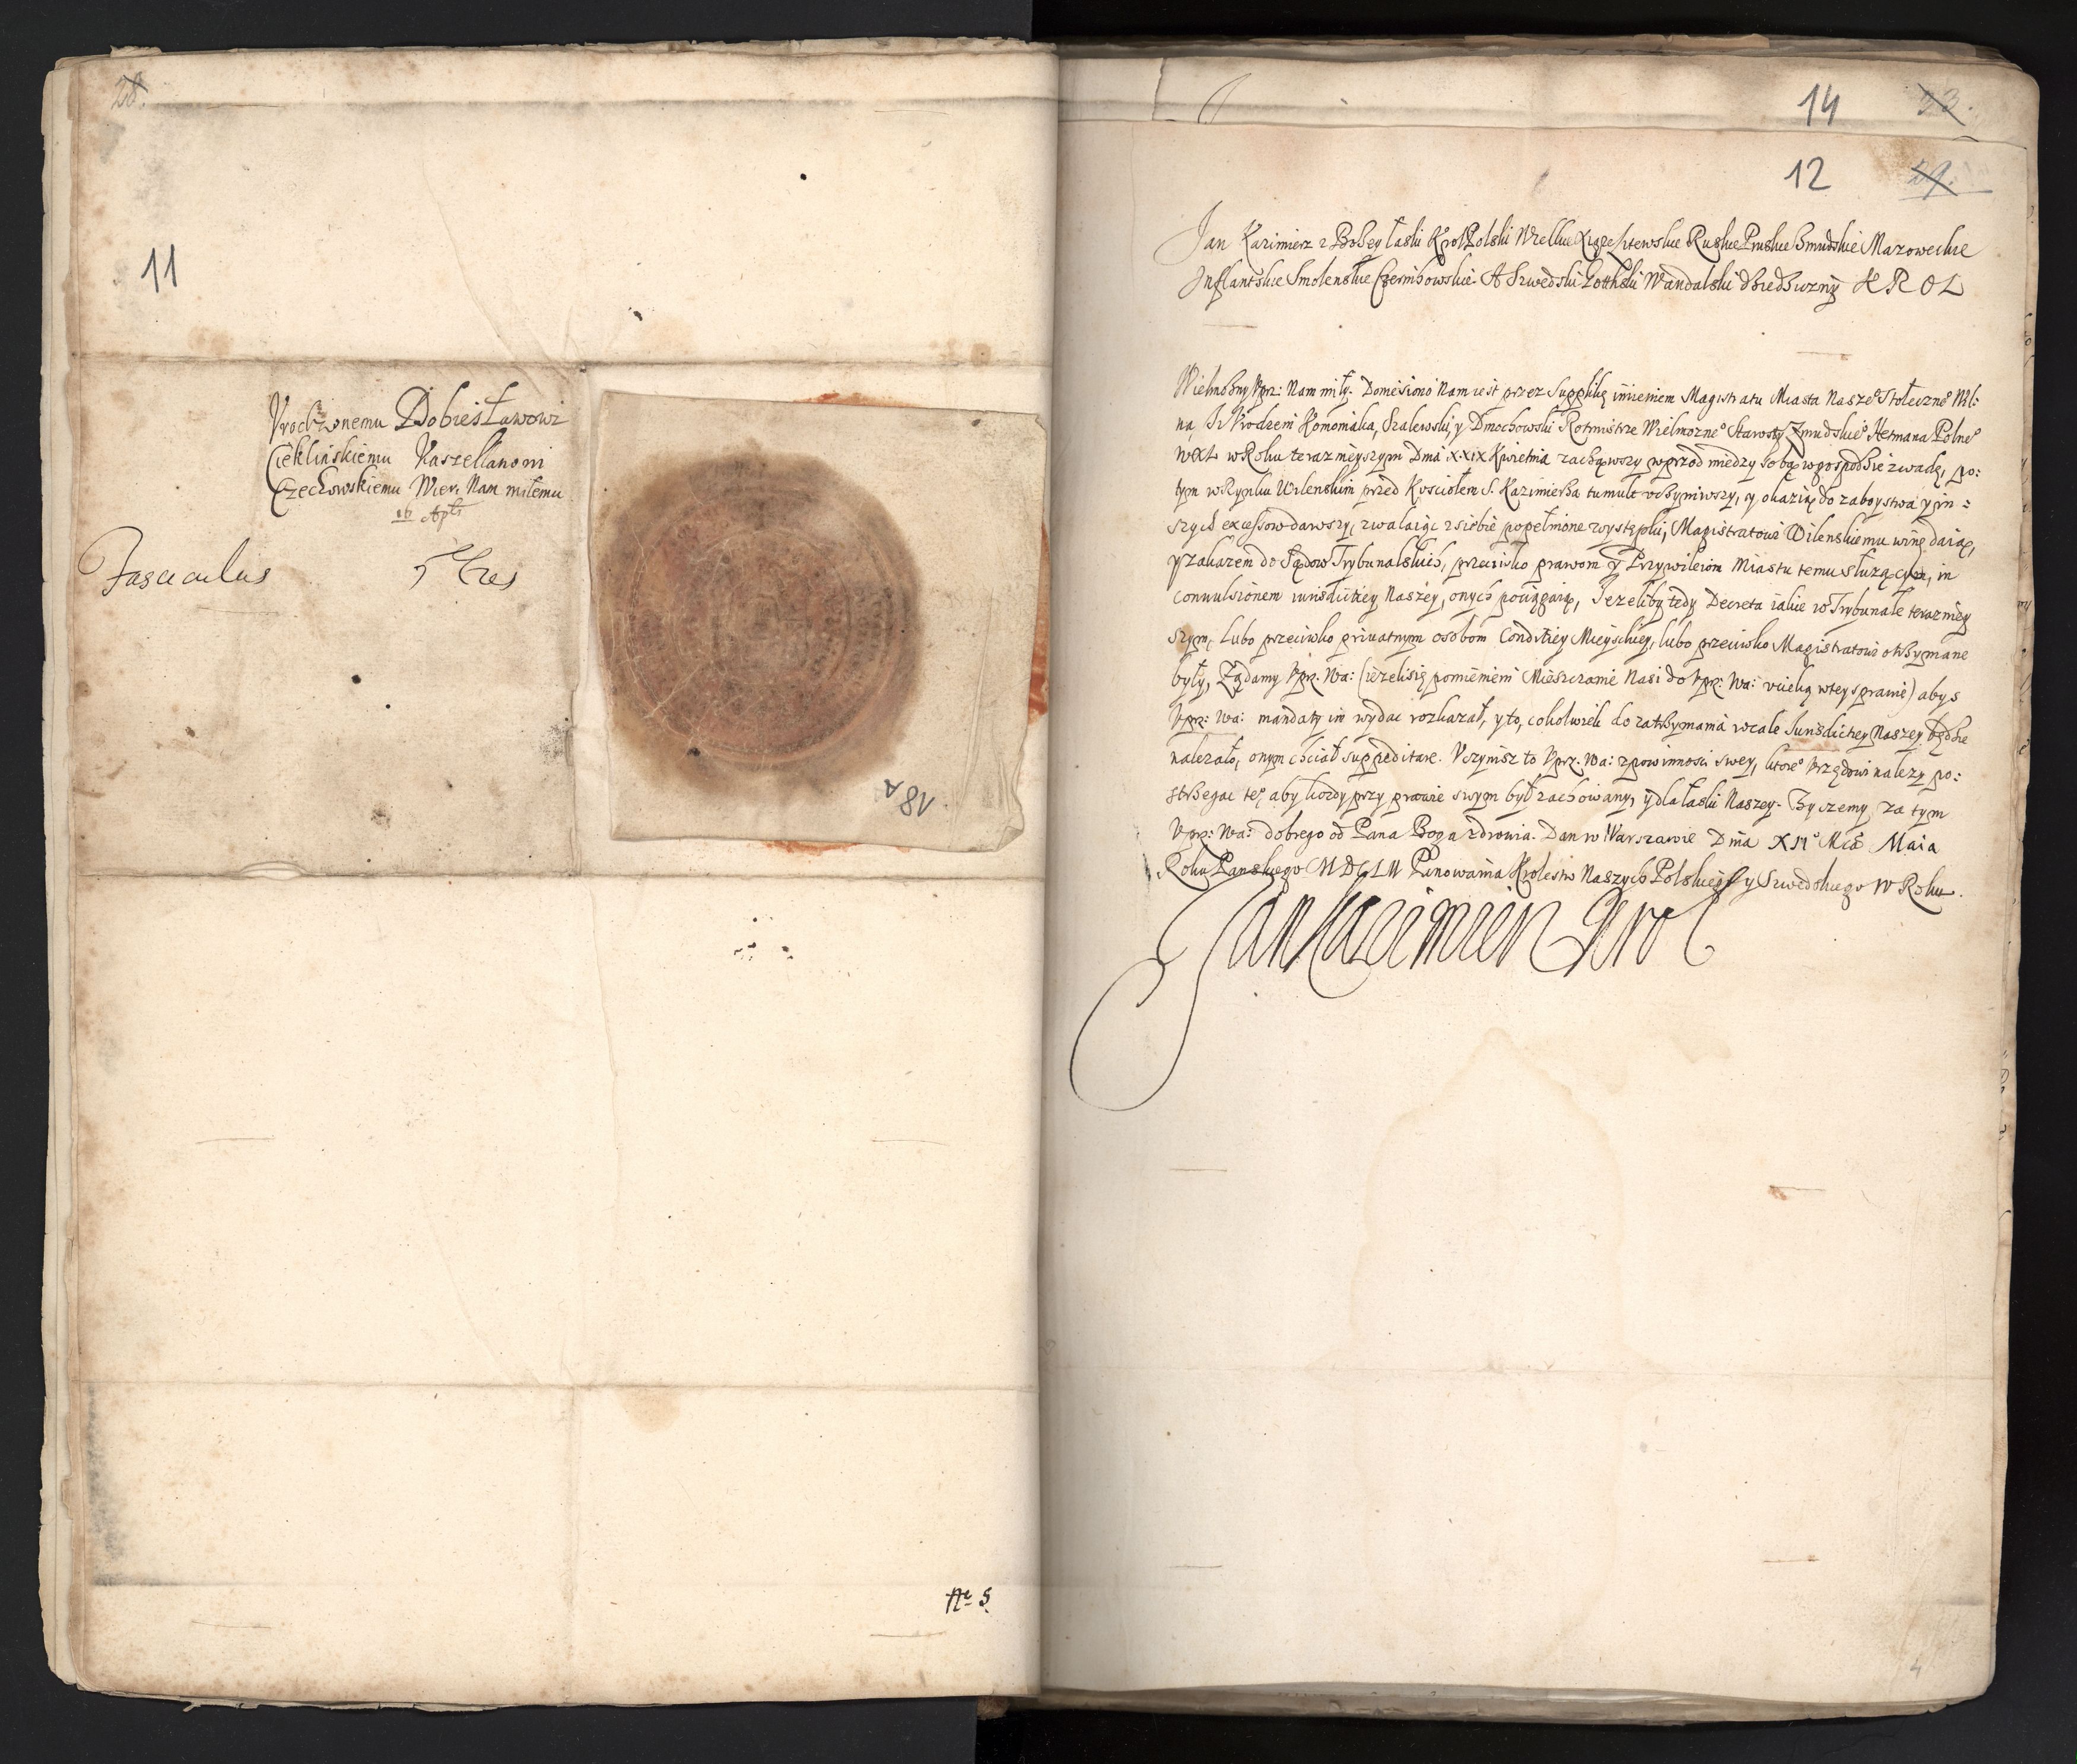 28.
11
Vrodzonemu Dobiesławowi
Cieklinskiemu Kasztellanowi
Czechowskiemu Wier. Nam miłemu
16 Aplis
Fasciculus
18A
No 5.
14 23.
12 29.
Jan Kazimierz z Bożey łaski Krol Polski Wielkie Xiąże Litewskie Ruskie Pruskie Zmudzkie Mazowieckie
Inflantskie Smolenskie Czernihowskie A Szwedski Gotthski Wandalski dziedziczny KROL
Wielmożny Vprz: Nam miły. Doniesiono Nam iest przez Supplikę imieniem Magistratu Miasta Nasze° Stołeczne° Wil:
na, Iż Vrodzeni Komoniaka, Szalewski, y Dmochowski Rotmistrze Wielmozne° Starosty Zmudskie° Hetmana Polne°
WXL w Roku terazniejszym Dma XXIX Kwietnia zacząwszy wprzod miedzy sobą w gospodzie zwadę, po:
tym w Rynku Wilenskim przed Kosciołem S. Kazimierza tumult vczyniwszy, y okazię do zaboystwa y in:
szych excessow dawszy, zwalaiąc z siebie popełnione występki, Magistratowi Wilenskiemu winę daią,
y zakazem do Sądow Trybunalskich, przeciwko prawom y Przywileiom Miastu temu służącym, in
convulsionem iurisdictiey Naszey, onych pociągaią, Iezeliby tedy Decreta iakie w Trybunale terazniey
szym, lubo przeciwko privatnym osobom Conditiey Mieyskiey, lubo przeciwko Magistratowi otrzymane
były, Żądamy Vprz. Wa: (iezeli się pomienieni Mieszczanie Nasi do Vprz: Wa: vcieką w tey sprawie) abys
Vprz: Wa: mandaty im wydac rozkazał, y to, cokolwiek do zatrzymania wcale Iurisdictiey Naszey będzie
nalezało, onym chciał suppeditare. Vczynisz to Vprz. Wa: z powinnosci swey, ktore° Vrzędowi nalezy po:
strzegac te°, aby kozdy przy prawie swym był zachowany, y dla łaski Naszey. Zyczemy za tym
Vprz: Wa: dobrego od Pana Boga zdrowia. Dan w Warszawie Dnia XII° Mca Maia
Roku Panskiego MDCLII Panowania Krolestw Naszych Polskiego y Szwedzkiego IV Roku.
Jan Kazimierz Krol
4